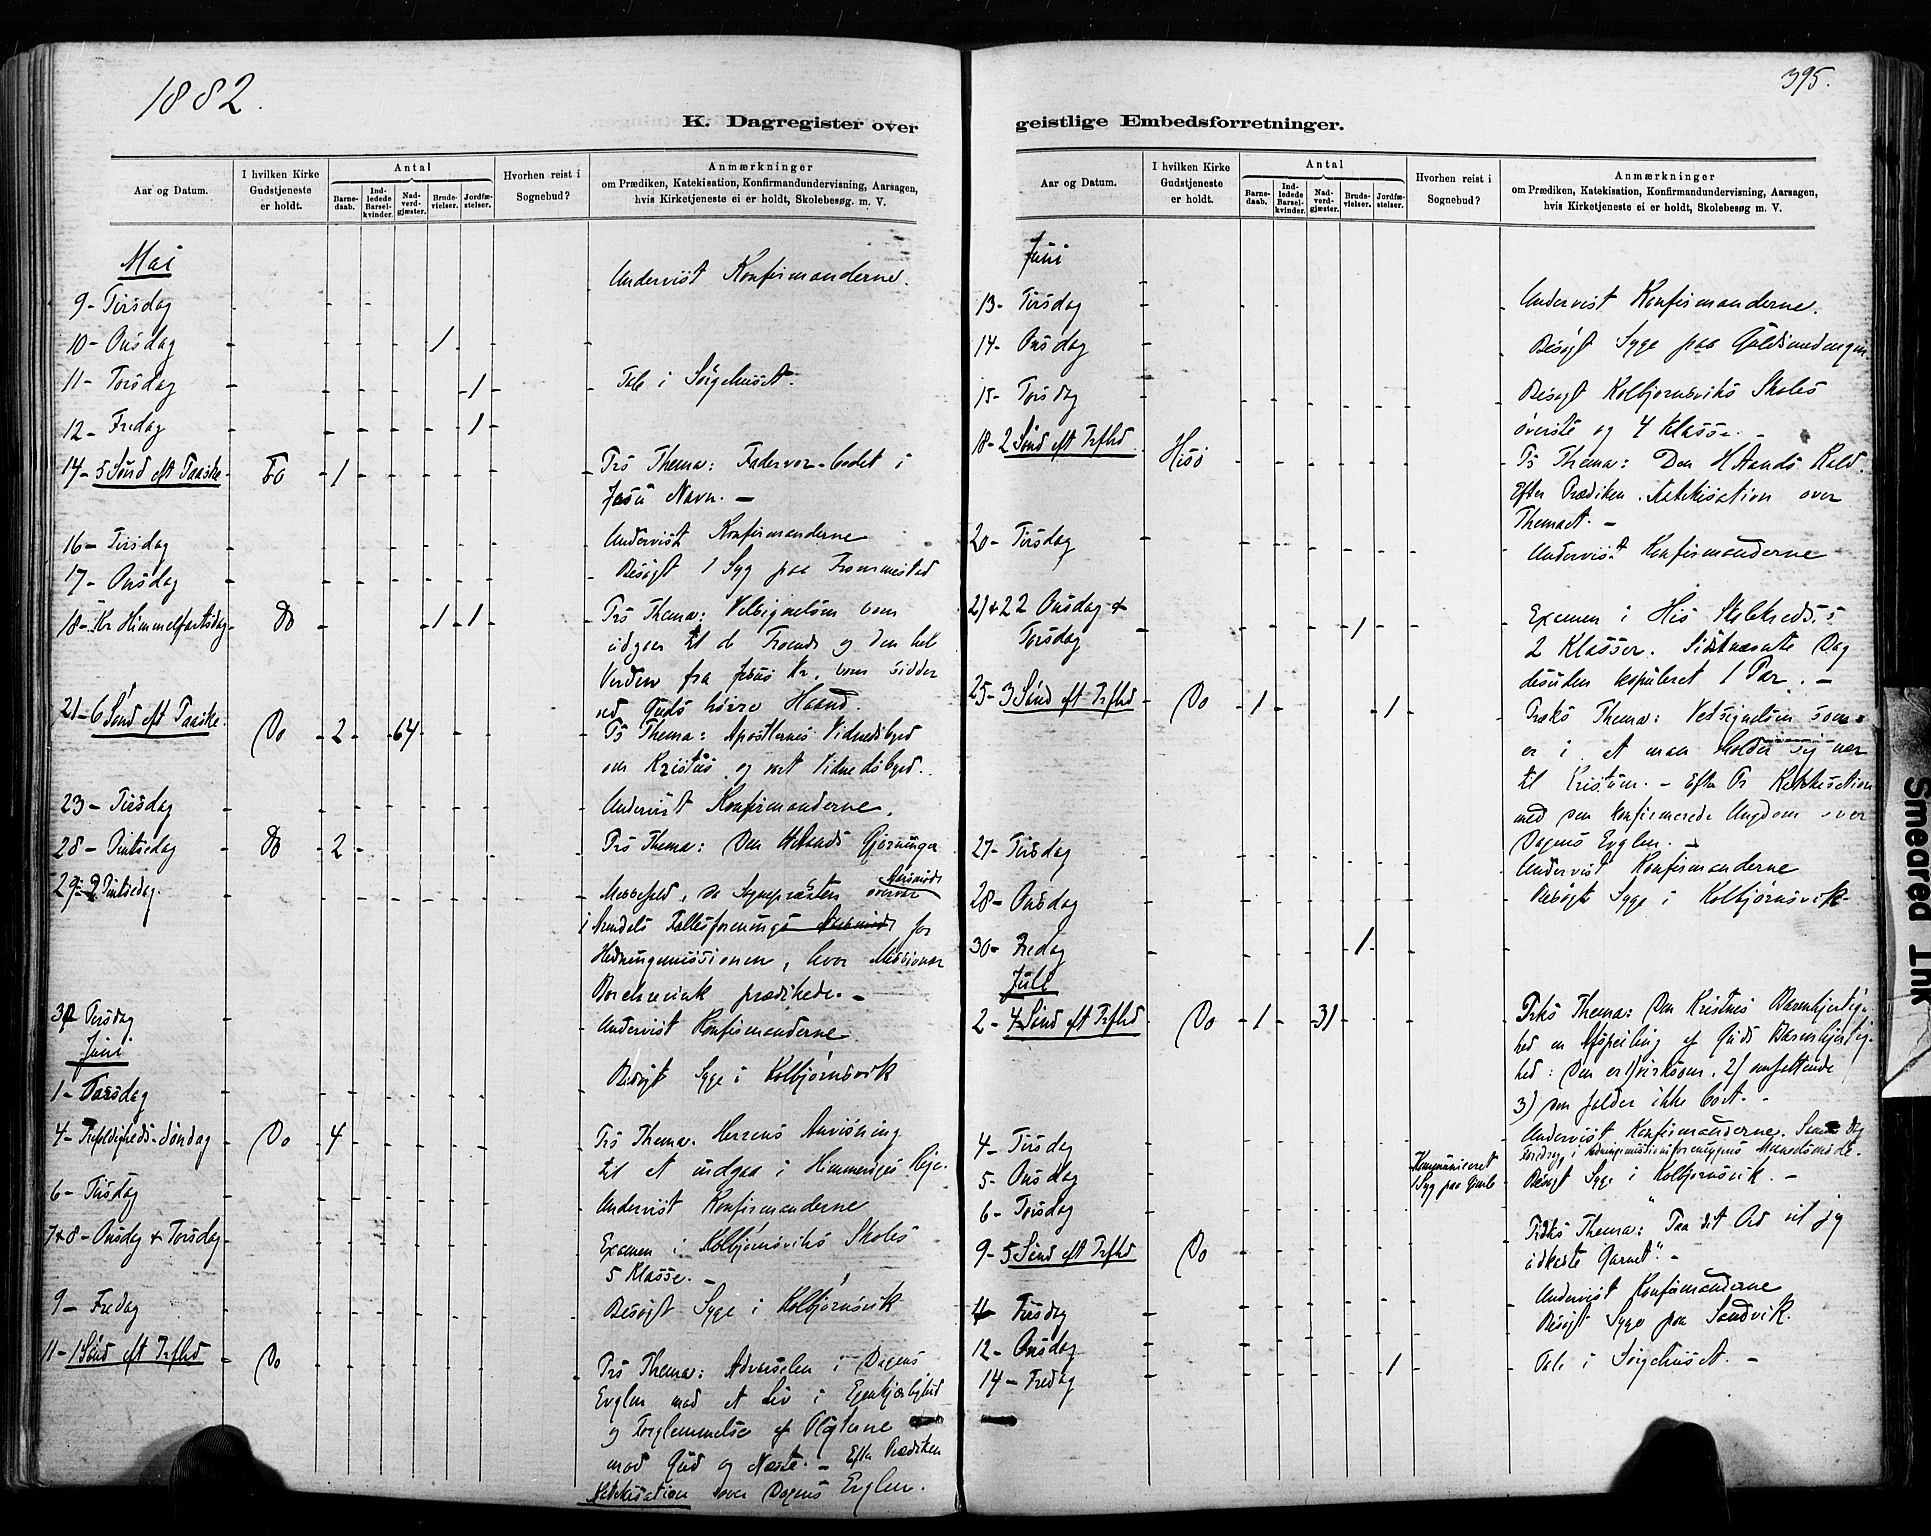 1882.
K. Dagregister over
Aar og Datum.
I hvilken Kirke Gudstjeneste er holdt.
Antal
Barne-daab.
Ind-ledede Barsel-kvinder.
Nad-verd-gjæster.
Brude-vielser.
Jordfæ-stelser.
Hvorhen reist i Sognebud?
Anmærkninger
om Prædiken, Katekisation, Konfirmandundervisning, Aarsagen,
hvis Kirketjeneste ei er holdt, Skolebesøg. m. V.
Mai
9 - Tirsdag - Undervist Konfirmanderne.
10 - Onsdag 1
11 - Torsdag 1 Tale i Sørgehuset.
12 - Fredag 1
14 - 5 Sønd eft Paaske 1 Prs Thema: Fadervor-bodet i
Jesu Navn. -
16 - Tirsdag Undervist Konfirmanderne
17 - Onsdag Besøgt 1 Syg paa Frommestad
18 - Kr Himmelfartsdag Do 1 1 Prs Thema: Velsignelsen som
udgaar til de Troende og den hele
Verden fra Jesus Kr, som sidder
ved Guds høire Haand.
21 - 6 Sønd eft Paaske. Do 2 64 Ps Thema: Apostlernes Vidnesbyrd
om Kristus og vort Vidnesbyrd.
23 - Tirsdag Undervist Konfirmanderne.
28 - Pintsedag Do 2 Prs Thema: Den HelAands Gjerninger
29 - 2 Pintsedag. Messefald, da Sognepræsten overvar Aarsmøde
i Arendels Fællesforenings Aarsmøde for
Hedningemissionen, hvor Missionær
Borchrevink prædikede. -
30 Tirsdag Undervist Konfirmanderne
Juni
1 - Torsdag Besøgt Syge i Kolbjørnsvik
4 - Trefoldigheds-Søndag Do 4 Prs Thema. Herrens Anvisning
til at indgaa i Himmeriges Rige.
6 - Tirsdag Undervist Konfirmanderne
7 & 8 - Onsdag & Torsdag Examen i Kolbjørnsviks Skoles
5 Klasse. -
9 - Fredag Besøgt Syge i Kolbjørnsvik
11 - 1 Sønd eft Trfhd Do Prs Thema: Advarselen i Dagens
Evglm mod et Liv i Egenkjærlighed
og Forglemmelse af Pligterne
mod Gud og Næste. - Efter Prædiken
Katekisation over Dagens Evglm.
395.
geistlige Embedsforretninger.
Aar og Datum.
I hvilken Kirke Gudstjeneste er holdt.
Antal
Barne-daab.
Ind-ledede Barsel-kvinder.
Nad-verd-gjæster.
Brude-vielser.
Jordfæ-stelser.
Hvorhen reist i Sognebud?
Anmærkninger
om Prædiken, Katekisation, Konfirmandundervisning, Aarsagen,
hvis Kirketjeneste ei er holdt, Skolebesøg m. V.
Juni
13 - Tirsdag Undervist Konfirmanderne.
14 - Onsdag Besøgt Syge paa Guldsmedengen
15 - Torsdag Besøgt Kolbjørnsviks Skoles
øverste og 4 Klasse. -
18 - 2 Sønd eft Trfhd. Hisø Ps Thema: Den H Aands Kald.
Efter Prædiken Katekisation over
Themaet. -
20 - Tirsdag Undervist Konfirmanderne
21 & 22 Onsdag & Torsdag 1 Examen i His Skolkreds's
2 Klasser. Sidstnævnte Dag
desuden kopuleret 1 Par. -
25 - 3 Sønd eft Trfhd Do 1 1 Prks Thema: Velsignelsen som
er i at man holder sig nær
til Kristum. - Efter Pr Katekisation
med den konfirmerede Ungdom over
Dagens Evglm. -
27 - Tirsdag Undervist Konfirmanderne
28 - Onsdag Besøgt Syge i Kolbjørnsvik -
30 - Fredag 1
Juli
2 - 4 Sønd eft Trfhd Do 1 31 Prks Thema: Den Kristnes Barmhjertig-
hed en Afspeiling af Guds Barmhjertig-
hed: Den er 1) virksom. 2) omfattende
3) den falder ikke bort. -
4 - Tirsdag Undervist Konfirmanderne. Samme Dag
Foredrag i Hedningemissionsforeningens Maanedsmøde.
5 - Onsdag Kommuniceret 1 Syg paa Gjerde Besøgt Syge i Kolbjørnsvik. -
6 - Torsdag
9 - 5 Sønd eft Trfhd Do Prks Thema: "Paa dit Ord vil jeg
udkaste Garnet". -
11 - Tirsdag Undervist Konfirmanderne
12 - Onsdag Besøgt Syge paa Sandvik.
14 - Fredag 1 Tale i Sørgehuset. -
Smeared Ink